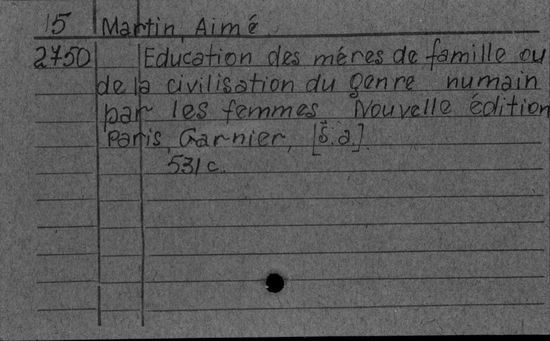 15 Martin, Aimé
2750 Education des méres de famille ou
de la civilisation du genre numain
par les femmes Nouvelle édition
Paris, Garnier, [s.a].
531 c.